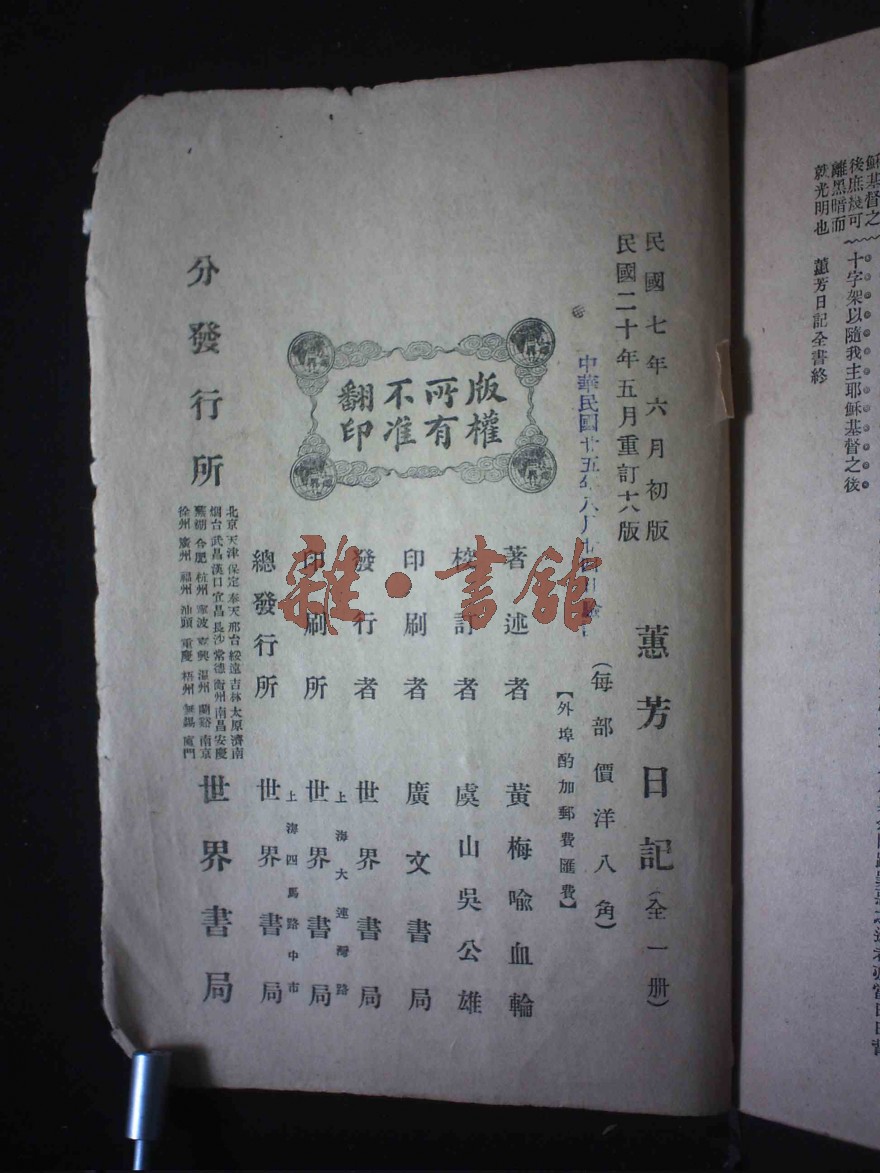 穌基督之
後庶幾可
離黑暗而
就光明也
十字架以隨我主耶穌基督之後
蕙芳日記全書終
民國七年六月初版
民國二十年五月重訂十八版
中華民國廿五年八月
蕙芳日記(全一册)
(每部價洋八角)
【外埠酌加郵費匯費】
版權
所有
不准
翻印
著述者 黃梅喩血輪
校訂者 虞山吳公雄
印刷者 廣文書局
發行者 世界書局
上海大連灣路
印刷所 世界書局
上海四馬路中市
總發行所 世界書局
分發行所
北京 天津 保定 奉天 邢台 綏遠 吉林 太原 濟南
烟台 武昌 漢口 宜昌 長沙 常德 衡州 南昌 安慶
蕪湖 合肥 杭州 寧波 嘉興 溫州 蘭谿 南京
徐州 廣州 福州 汕頭 重慶 梧州 無錫 廈門
世界書局
雜·書館